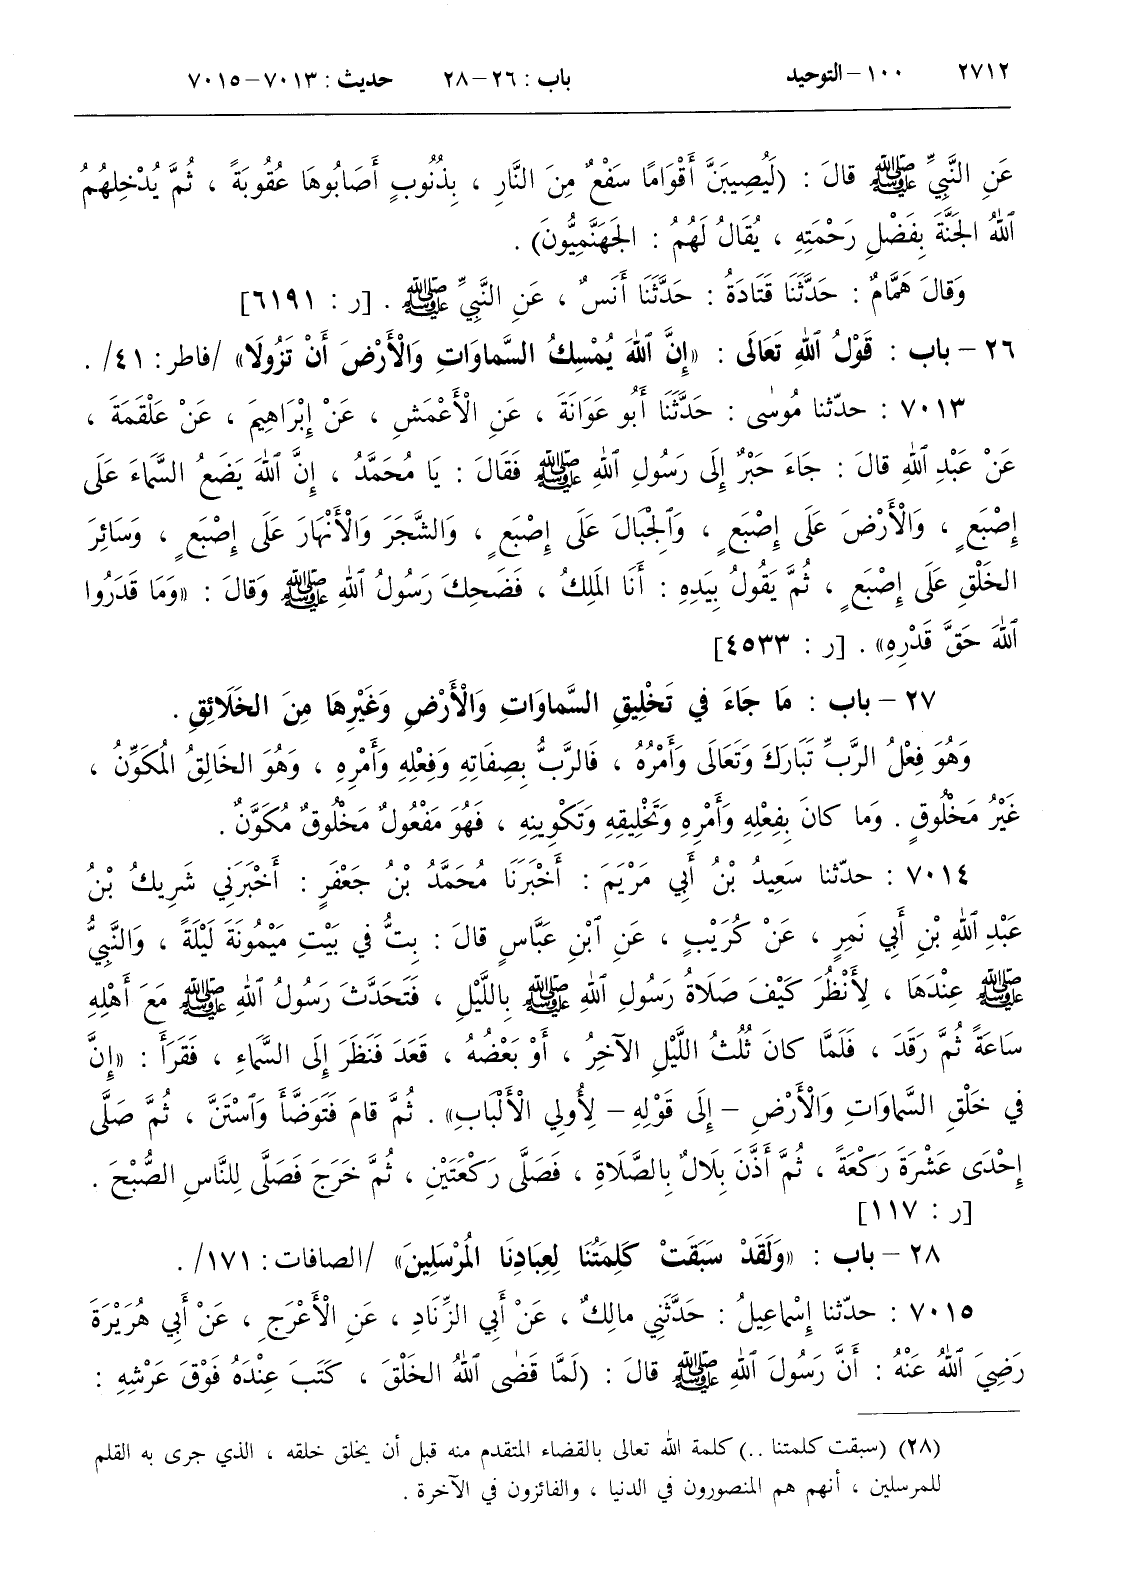 ٢٧١٢ ١٠٠ – التوحيد باب : ٢٦ – ٢٨ حديث : ٧٠١٣ – ٧٠١٥
عَنِ النَّبِيِّ ﷺ قالَ : (لَيُصِيبَنَّ أَقْوَامًا سَفْعٌ مِنَ النَّارِ ، بِذُنُوبٍ أَصَابُوهَا عُقُوبَةً ، ثُمَّ يُدْخِلُهُمُ
ٱللهُ الجَنَّةَ بِفَضْلِ رَحْمَتِهِ ، يُقَالُ لَهُمُ : الجَهَنَّمِيُّونَ) .
وَقالَ هَمَّامٌ : حَدَّثَنَا قَتَادَةُ : حَدَّثَنَا أَنَسٌ ، عَنِ النَّبِيِّ ﷺ . [ر : ٦١٩١]
٢٦ – باب : قَوْلُ ٱللهِ تَعَالَى : «إِنَّ ٱللهَ يُمْسِكُ السَّماوَاتِ وَالْأَرْضَ أَنْ تَزُولَا» /فاطر : ٤١/ .
٧٠١٣ : حدّثنا مُوسٰى : حَدَّثَنَا أَبُو عَوَانَةَ ، عَنِ الْأَعْمَشِ ، عَنْ إِبْرَاهِيمَ ، عَنْ عَلْقَمَةَ ،
عَنْ عَبْدِ ٱللهِ قالَ : جَاءَ حَبْرٌ إِلَى رَسُولِ ٱللهِ ﷺ فَقَالَ : يَا مُحَمَّدُ ، إِنَّ ٱللهَ يَضَعُ السَّمَاءَ عَلَى
إِصْبَعٍ ، وَالْأَرْضَ عَلَى إِصْبَعٍ ، وَٱلْجِبَالَ عَلَى إِصْبَعٍ ، وَالشَّجَرَ وَالْأَنْهَارَ عَلَى إِصْبَعٍ ، وَسَائِرَ
الخَلْقِ عَلَى إِصْبَعٍ ، ثُمَّ يَقُولُ بِيَدِهِ : أَنَا المَلِكُ ، فَضَحِكَ رَسُولُ ٱللهِ ﷺ وَقالَ : «وَمَا قَدَرُوا
ٱللهَ حَقَّ قَدْرِهِ» . [ر : ٤٥٣٣]
٢٧ – باب : مَا جَاءَ في تَخْلِيقِ السَّماوَاتِ وَالْأَرْضِ وَغَيْرِهَا مِنَ الخَلَائِقِ .
وَهُوَ فِعْلُ الرَّبِّ تَبَارَكَ وَتَعَالَى وَأَمْرُهُ ، فَالرَّبُّ بِصِفَاتِهِ وَفِعْلِهِ وَأَمْرِهِ ، وَهُوَ الخَالِقُ المُكَوِّنُ ،
غَيْرُ مَخْلُوقٍ . وَما كانَ بِفِعْلِهِ وَأَمْرِهِ وَتَخْلِيقِهِ وَتَكْوِينِهِ ، فَهُوَ مَفْعُولٌ مَخْلُوقٌ مُكَوَّنٌ .
٧٠١٤ : حدّثنا سَعِيدُ بْنُ أَبِي مَرْيَمَ : أَخْبَرَنَا مُحَمَّدُ بْنُ جَعْفَرٍ : أَخْبَرَنِي شَرِيكُ بْنُ
عَبْدِ ٱللهِ بْنِ أَبِي نَمِرٍ ، عَنْ كُرَيْبٍ ، عَنِ ٱبْنِ عَبَّاسٍ قالَ : بِتُّ في بَيْتِ مَيْمُونَةَ لَيْلَةً ، وَالنَّبِيُّ
ﷺ عِنْدَهَا ، لِأَنْظُرَ كَيْفَ صَلَاةُ رَسُولِ ٱللهِ ﷺ بِاللَّيْلِ ، فَتَحَدَّثَ رَسُولُ ٱللهِ ﷺ مَعَ أَهْلِهِ
سَاعَةً ثُمَّ رَقَدَ ، فَلَمَّا كانَ ثُلُثُ اللَّيْلِ الآخِرُ ، أَوْ بَعْضُهُ ، قَعَدَ فَنَظَرَ إِلَى السَّمَاءِ ، فَقَرَأَ : «إِنَّ
في خَلْقِ السَّماوَاتِ وَالْأَرْضِ – إِلَى قَوْلِهِ – لِأُولِي الْأَلْبَابِ» . ثُمَّ قامَ فَتَوَضَّأَ وَٱسْتَنَّ ، ثُمَّ صَلَّى
إِحْدَى عَشْرَةَ رَكْعَةً ، ثُمَّ أَذَّنَ بِلَالٌ بِالصَّلَاةِ ، فَصَلَّى رَكْعَتَيْنِ ، ثُمَّ خَرَجَ فَصَلَّى لِلنَّاسِ الصُّبْحَ .
[ر : ١١٧]
٢٨ – باب : «وَلَقَدْ سَبَقَتْ كَلِمَتُنَا لِعِبَادِنَا المُرْسَلِينَ» /الصافات : ١٧١/ .
٧٠١٥ : حدّثنا إِسْماعِيلُ : حَدَّثَنِي مالِكٌ ، عَنْ أَبِي الزِّنَادِ ، عَنِ الْأَعْرَجِ ، عَنْ أَبِي هُرَيْرَةَ
رَضِيَ ٱللهُ عَنْهُ : أَنَّ رَسُولَ ٱللهِ ﷺ قالَ : (لَمَّا قَضٰى ٱللهُ الخَلْقَ ، كَتَبَ عِنْدَهُ فَوْقَ عَرْشِهِ :
(٢٨) (سبقت كلمتنا ..) كلمة الله تعالى بالقضاء المتقدم منه قبل أن يخلق خلقه ، الذي جرى به القلم
للمرسلين ، أنهم هم المنصورون في الدنيا ، والفائزون في الآخرة .